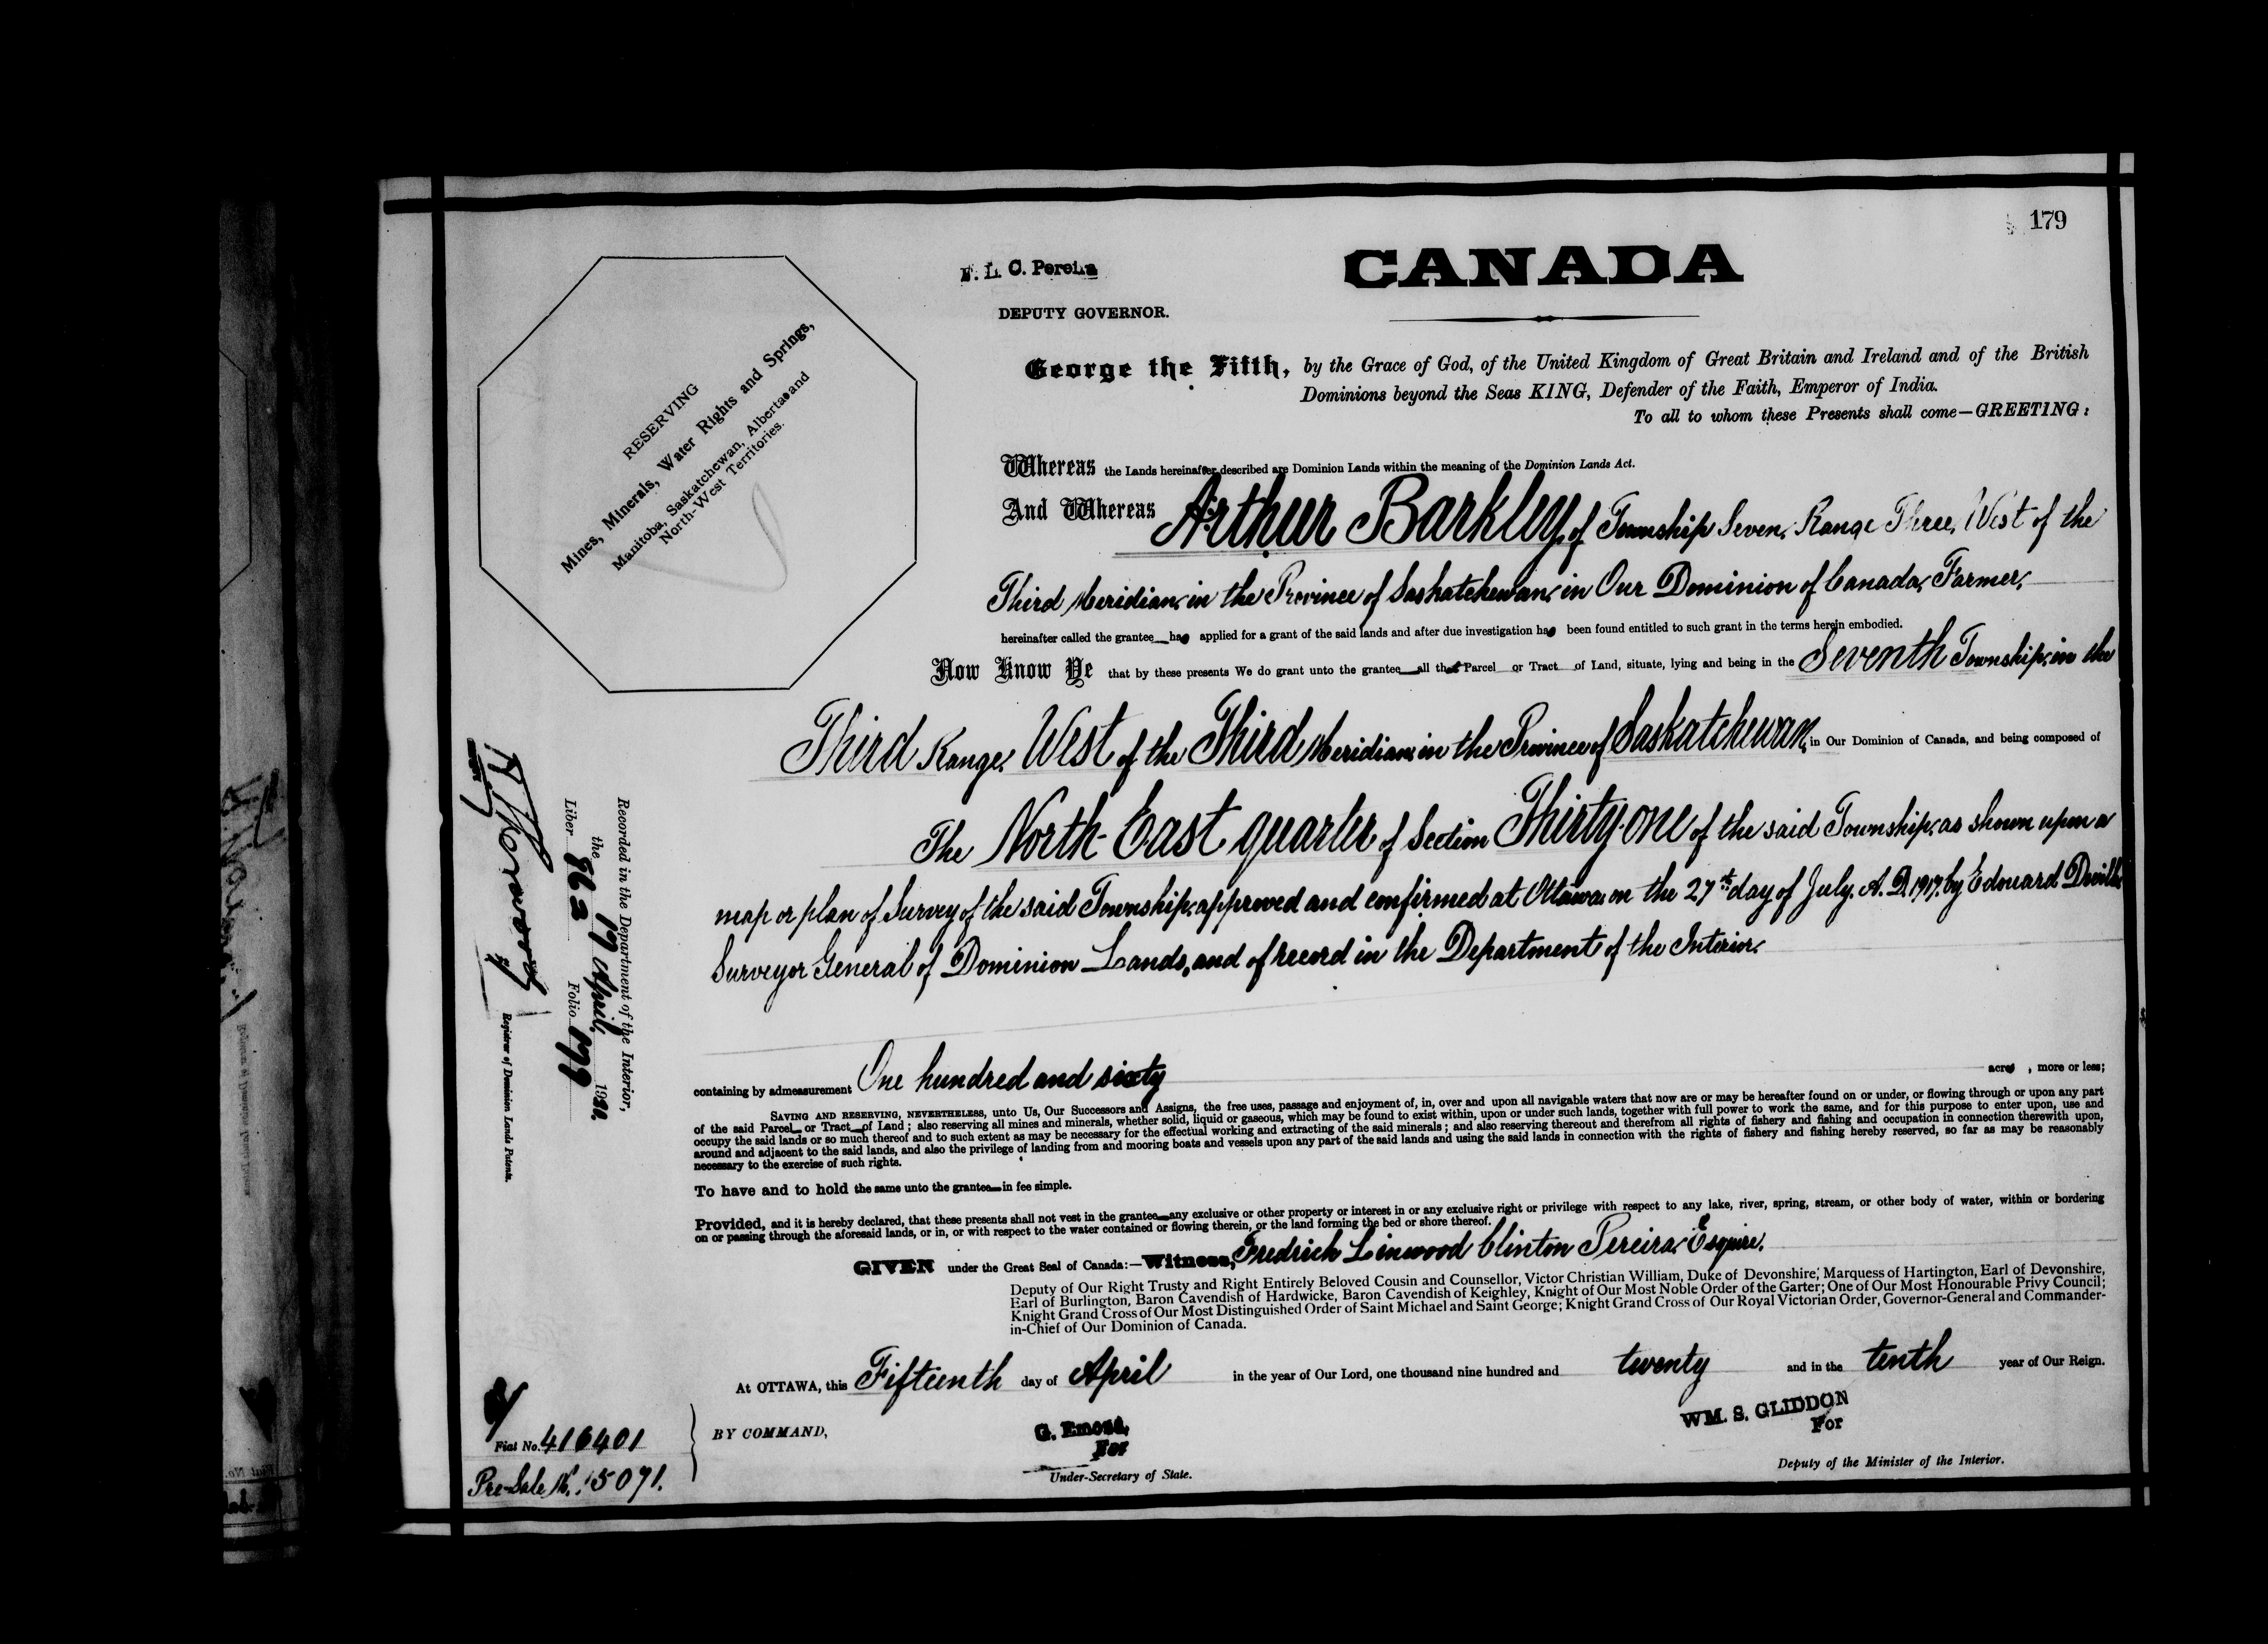 179
F. L. C. Pereira
CANADA
DEPUTY GOVERNOR.
George the Fifth, by the Grace of God, of the United Kingdom of Great Britain and Ireland and of the British
Dominions beyond the Seas KING, Defender of the Faith, Emperor of India.
To all to whom these Presents shall come—GREETING:
RESERVING
Mines, Minerals, Water Rights and Springs,
Manitoba, Saskatchewan, Alberta and
North-West Territories.
Whereas the Lands hereinafter described are Dominion Lands within the meaning of the Dominion Lands Act.
And Whereas Arthur Barkley, of Township Seven, Range Three, West of the
Third Meridian, in the Province of Saskatchewan, in Our Dominion of Canada, Farmer,
hereinafter called the grantee has applied for a grant of the said lands and after due investigation has been found entitled to such grant in the terms herein embodied.
Now Know Ye that by these presents We do grant unto the grantee all that Parcel or Tract of Land, situate, lying and being in the Seventh Township, in the
Third Range, West of the Third Meridian, in the Province of Saskatchewan, in Our Dominion of Canada, and being composed of
The North-East quarter of Section Thirty-one of the said Township, as shown upon a
map or plan of Survey of the said Township, approved and confirmed at Ottawa, on the 27th day of July, A.D. 1917, by Edouard Deville,
Surveyor General of Dominion Lands, and of record in the Department of the Interior.
containing by admeasurement One hundred and sixty acres, more or less;
SAVING AND RESERVING, NEVERTHELESS, unto Us, Our Successors and Assigns, the free uses, passage and enjoyment of, in, over and upon all navigable waters that now are or may be hereafter found on or under, or flowing through or upon any part
of the said Parcel or Tract of Land; also reserving all mines and minerals, whether solid, liquid or gaseous, which may be found to exist within, upon or under such lands, together with full power to work the same, and for this purpose to enter upon, use and
occupy the said lands or so much thereof and to such extent as may be necessary for the effectual working and extracting of the said minerals; and also reserving thereout and therefrom all rights of fishery and fishing and occupation in connection therewith upon,
around and adjacent to the said lands, and also the privilege of landing from and mooring boats and vessels upon any part of the said lands and using the said lands in connection with the rights of fishery and fishing hereby reserved, so far as may be reasonably
necessary to the exercise of such rights.
To have and to hold the same unto the grantee in fee simple.
Provided, and it is hereby declared, that these presents shall not vest in the grantee any exclusive or other property or interest in or any exclusive right or privilege with respect to any lake, river, spring, stream, or other body of water, within or bordering
on or passing through the aforesaid lands, or in, or with respect to the water contained or flowing therein, or the land forming the bed or shore thereof.
GIVEN under the Great Seal of Canada:—Witness, Fredrick Linwood Clinton Pereira, Esquire,
Deputy of Our Right Trusty and Right Entirely Beloved Cousin and Counsellor, Victor Christian William, Duke of Devonshire, Marquess of Hartington, Earl of Devonshire,
Earl of Burlington, Baron Cavendish of Hardwicke, Baron Cavendish of Keighley, Knight of Our Most Noble Order of the Garter; One of Our Most Honourable Privy Council;
Knight Grand Cross of Our Most Distinguished Order of Saint Michael and Saint George; Knight Grand Cross of Our Royal Victorian Order, Governor-General and Commander-
in-Chief of Our Dominion of Canada.
At OTTAWA, this Fifteenth day of April in the year of Our Lord, one thousand nine hundred and twenty and in the tenth year of Our Reign.
BY COMMAND,
WM. S. GLIDDON
For
Deputy of the Minister of the Interior.
For
Under-Secretary of State.
Fiat No. 416401
Pre-Sale No. 15091.
Recorded in the Department of the Interior,
the 19 April, 1920.
Liber 862 Folio 179
Registrar of Dominion Lands Patents.